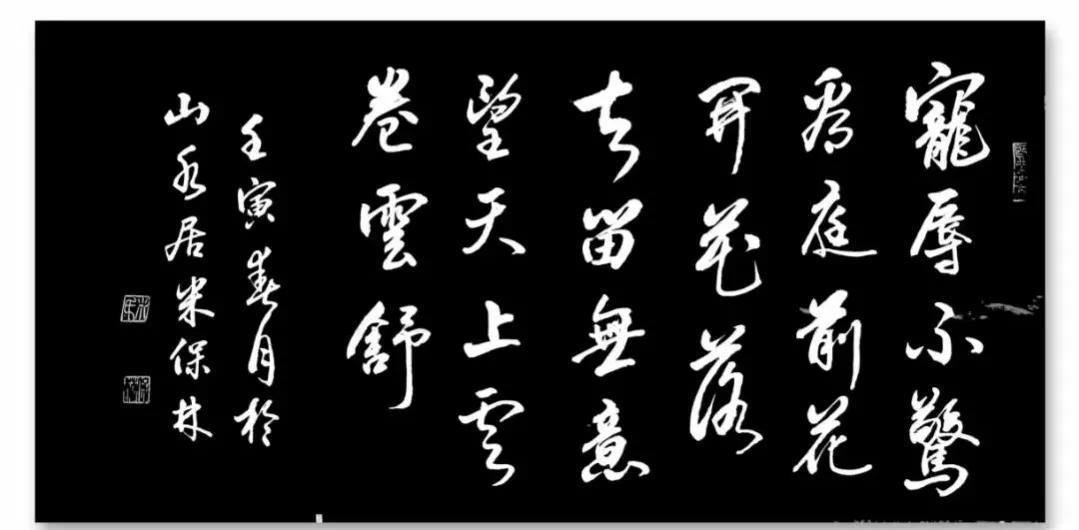 寵辱不驚
看庭前花
開花落
去留無意
望天上雲
卷雲舒
壬寅春月於
山水居米保林